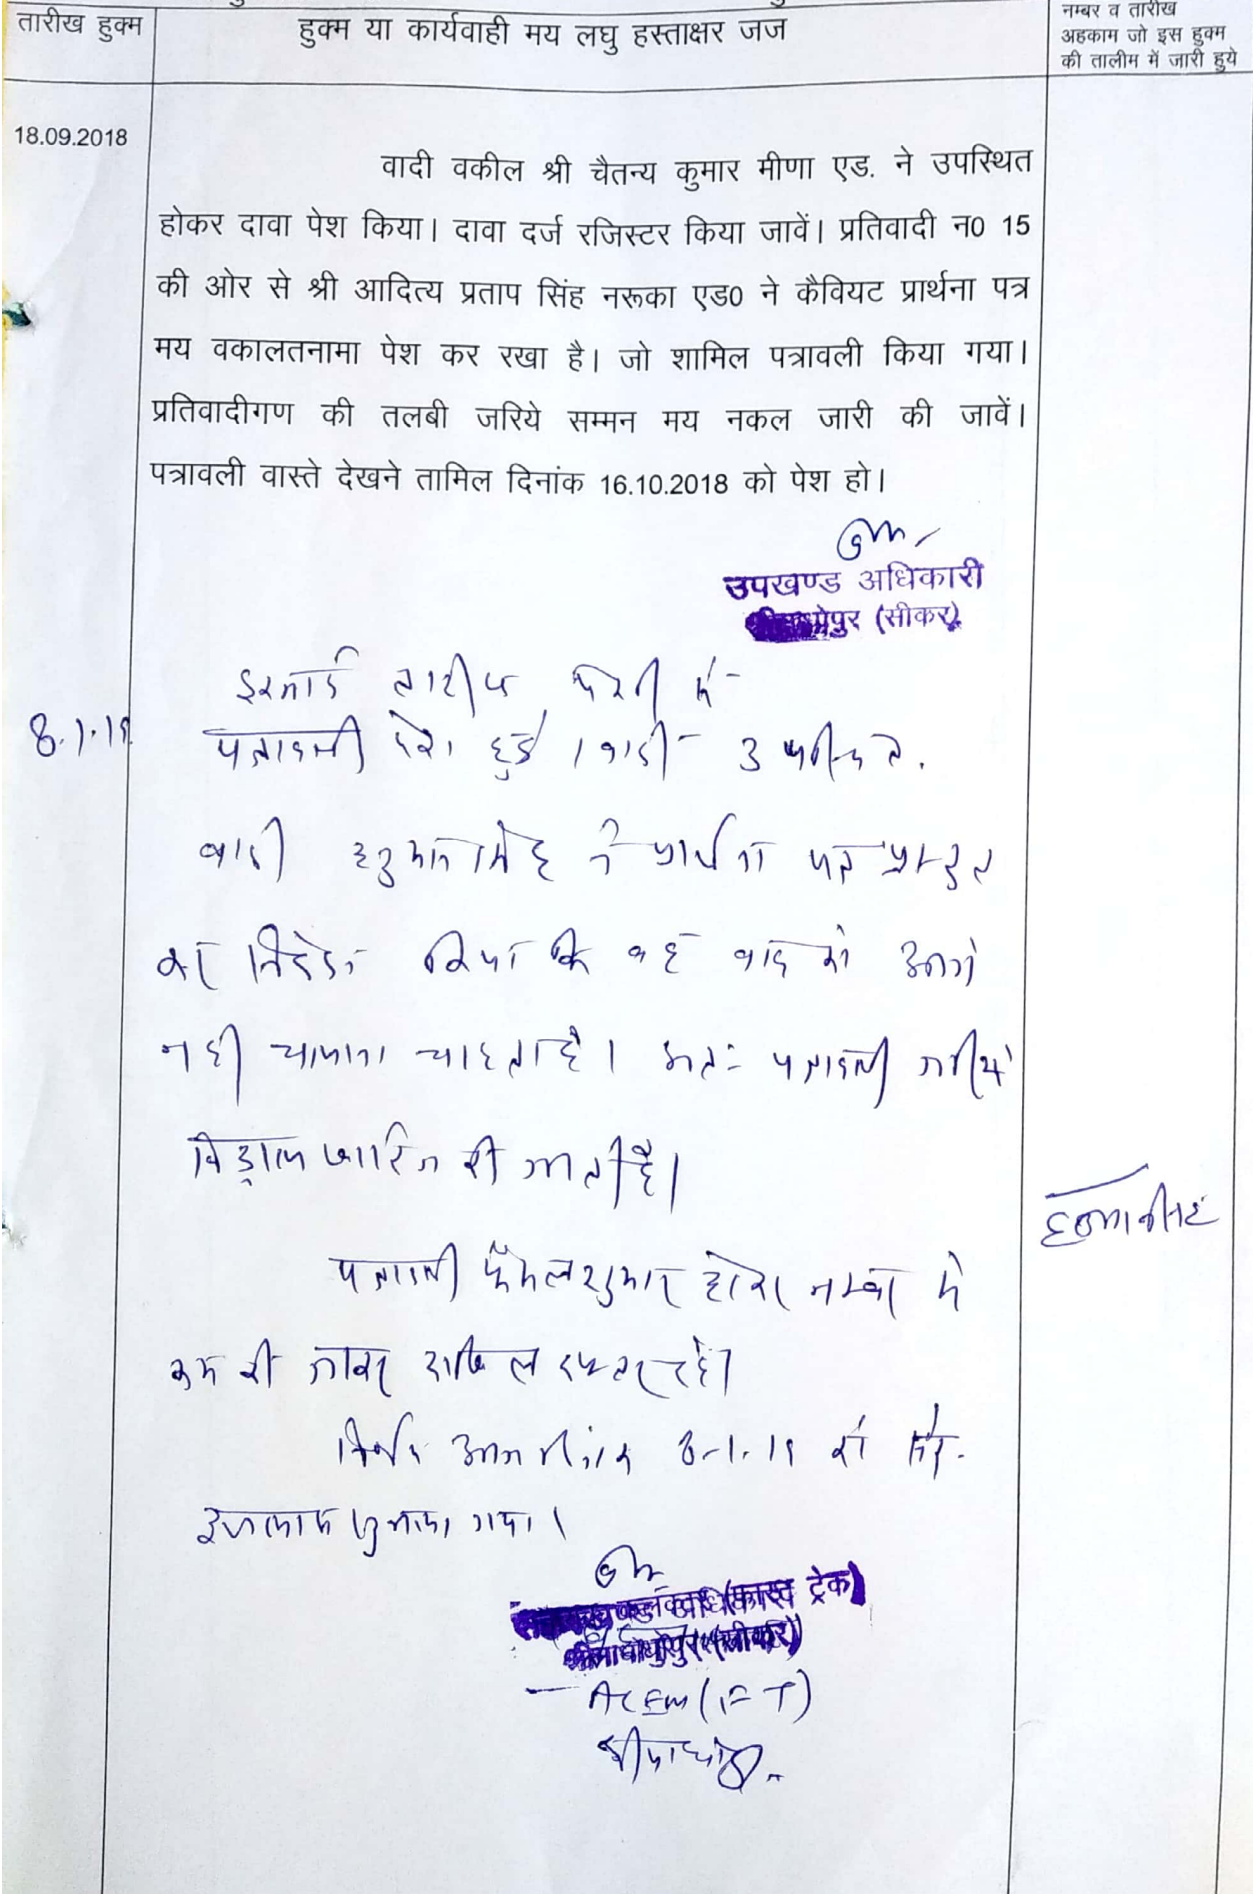 तारीख हुक्म
हुक्म या कार्यवाही मय लघु हस्ताक्षर जज
नम्बर व तारीख
अहकाम जो इस हुक्म
की तालीम में जारी हुये
18.09.2018
वादी वकील श्री चैतन्य कुमार मीणा एड. ने उपस्थित
होकर दावा पेश किया। दावा दर्ज रजिस्टर किया जावें। प्रतिवादी न0 15
की ओर से श्री आदित्य प्रताप सिंह नरूका एड0 ने कैवियट प्रार्थना पत्र
मय वकालतनामा पेश कर रखा है। जो शामिल पत्रावली किया गया।
प्रतिवादीगण की तलबी जरिये सम्मन मय नकल जारी की जावें।
पत्रावली वास्ते देखने तामिल दिनांक 16.10.2018 को पेश हो।
उपखण्ड अधिकारी
(सीकर)
तारीख पेशी में
8.1.19
पत्रावली पेश हुई। वादी उपस्थित.
वादी हनुमान सिंह ने प्रार्थना पत्र प्रस्तुत
कर निवेदन किया कि वह वाद को आगे
नही चलाना चाहता है। अतः पत्रावली जरिये
विड्राल खारिज की जाती है।
पत्रावली फैसल शुमार होकर नम्बर से
कम की जाकर दाखिल दफ्तर रहे।
निर्णय आज दिनांक 8-1-19 को
इजलास सुनाया गया।
ट्रेक)
ACEM (FT)
श्रीमाधोपुर